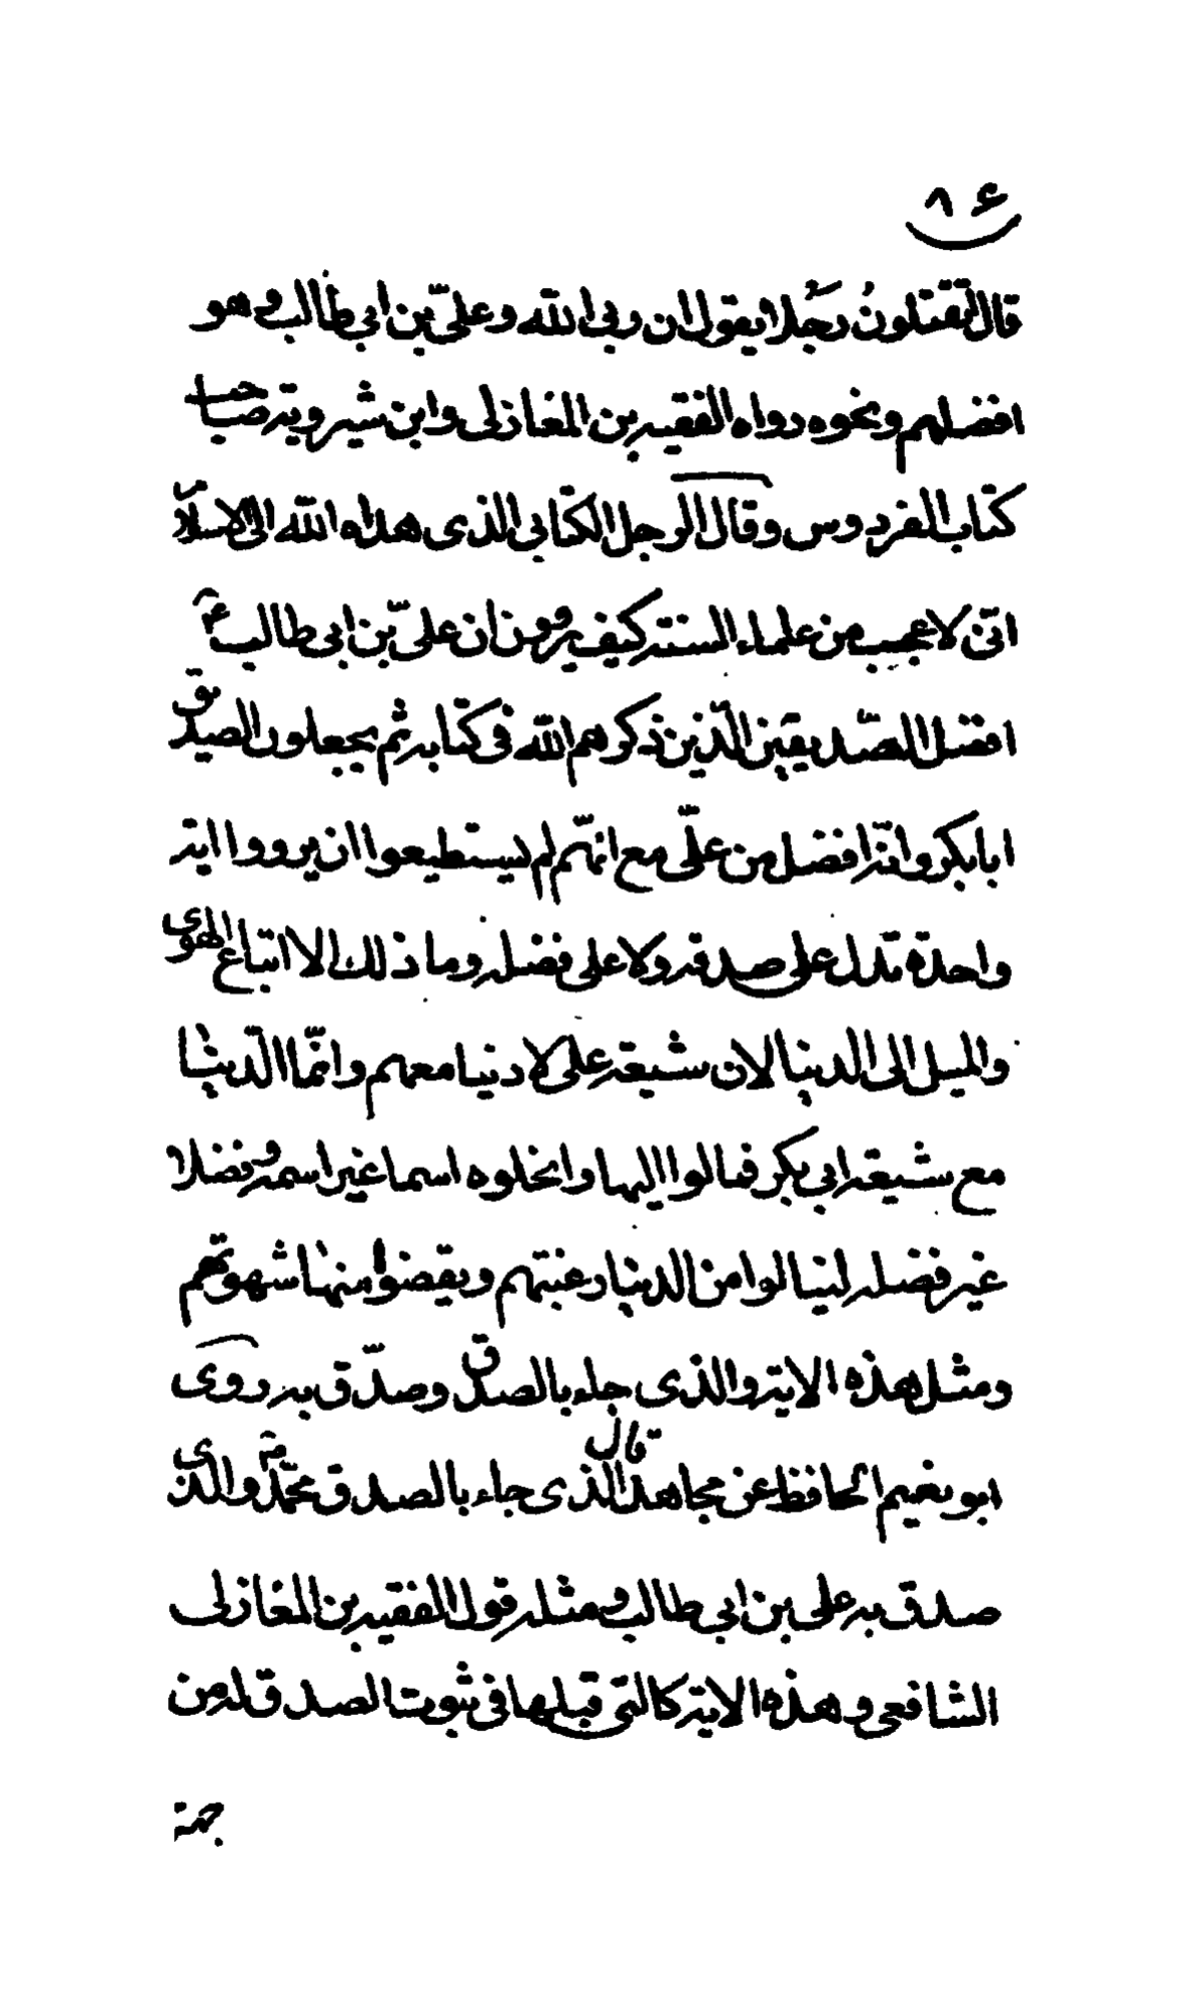 ٨۶
قال اتقتلون رجلا يقول ان ربى الله وعلىّ بن ابى طالب وهو
افضلهم ونحوه رواه الفقيه بن المغازلى وابن شيرويه صاحب
كتاب الفردوس وقال الرجل الكتابى الذى هداه الله الى الاسلام
انى لاعجب من علماء السنة كيف يروون ان علىّ بن ابى طالب ع
افضل الصّديقين الّذين ذكرهم الله فى كتابه ثم يجعلون الصديق
ابا بكر وانّه افضل من علّى مع انهّم لم يستطيعوا ان يرووا اية
واحدة تدل على صدقه ولا على فضله وما ذلك الا اتباع الهوى
والميل الى الدنيا لان شيعة على لا دنيا معهم وانمّا الّدنيا
مع شيعة ابى بكر فمالوا اليها وانحلوه اسما غير اسمه وفضلا
غير فضله لينالوا من الدنيا رغبتهم ويقضوا منها شهوتهم
ومثل هذه الاية والذى جاء بالصدق وصدّق به روى
ابو نعيم الحافظ عن مجاهد قال الذى جاء بالصدق محمّد ص والذى
صدق به على بن ابى طالب ومثله قول الفقيه بن المغازلى
الشافعى وهذه الاية كالتى قبلها فى ثبوت الصدق له من
جهة